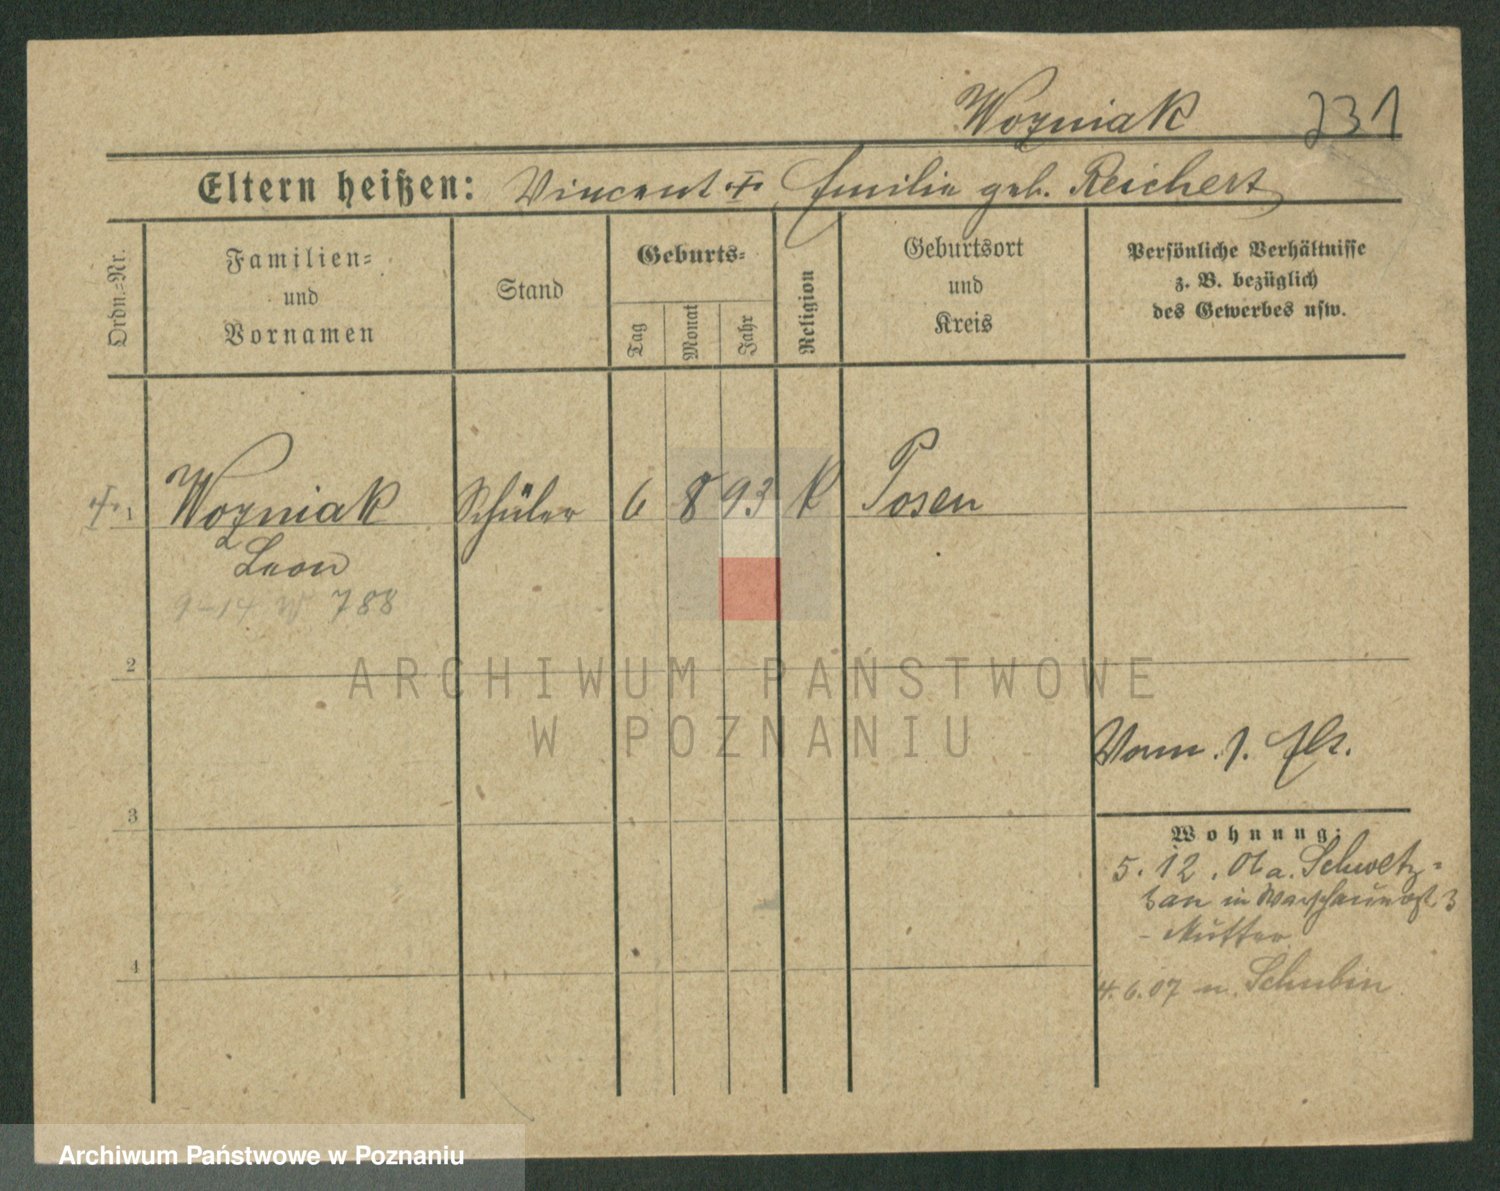 Wozniak 231
Eltern heißen: Vincent + Emilie geb. Reichert
Ordn.-Nr.
Familien-
und
Vornamen
Stand
Geburts-
Tag
Monat
Jahr
Religion
Geburtsort
und
Kreis
Persönliche Verhältnisse
z. B. bezüglich
des Gewerbes usw.
1 Wozniak Schüler 6 8 93 K Posen
Leon
788
2
ARCHIWUM PAŃSTWOWE
W POZNANIU
3
Wohnung:
5. 12. Schwetz-
in 3
- Mutter
4
4. 6. 07 n. Schubin
Archiwum Państwowe w Poznaniu